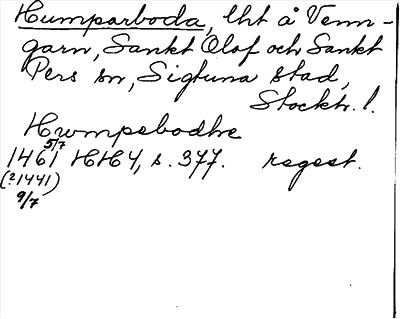 Humparboda, lht å Venn-
garn, Sankt Olof och Sankt
Pers sn, Sigtuna stad,
Stockh. l.
Hwmpebodhe
5/7
1461 HH 4, s. 377. regest.
(?1441)
9/7